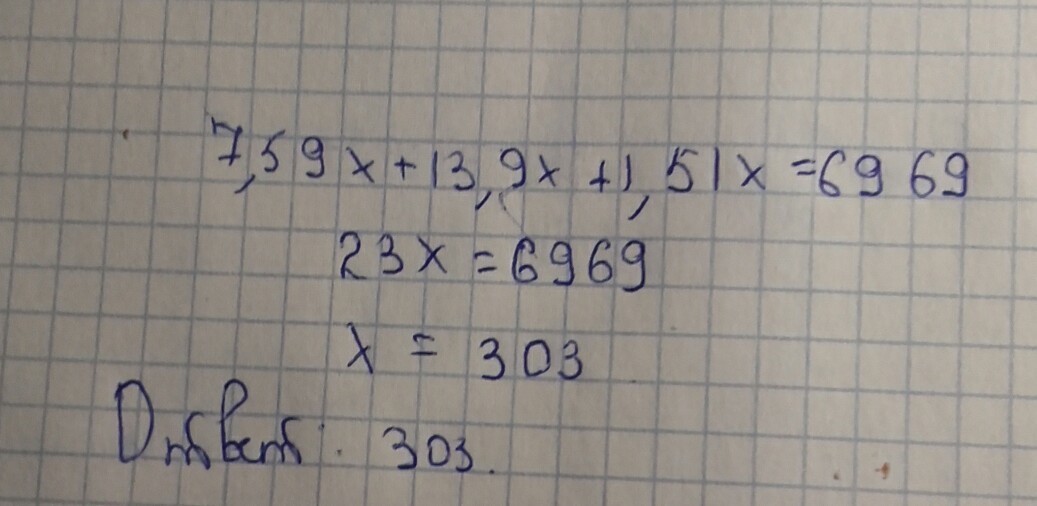 7,59x+13,9x+1,51x=6969
23x=6969
x=303
Ответ: 303.